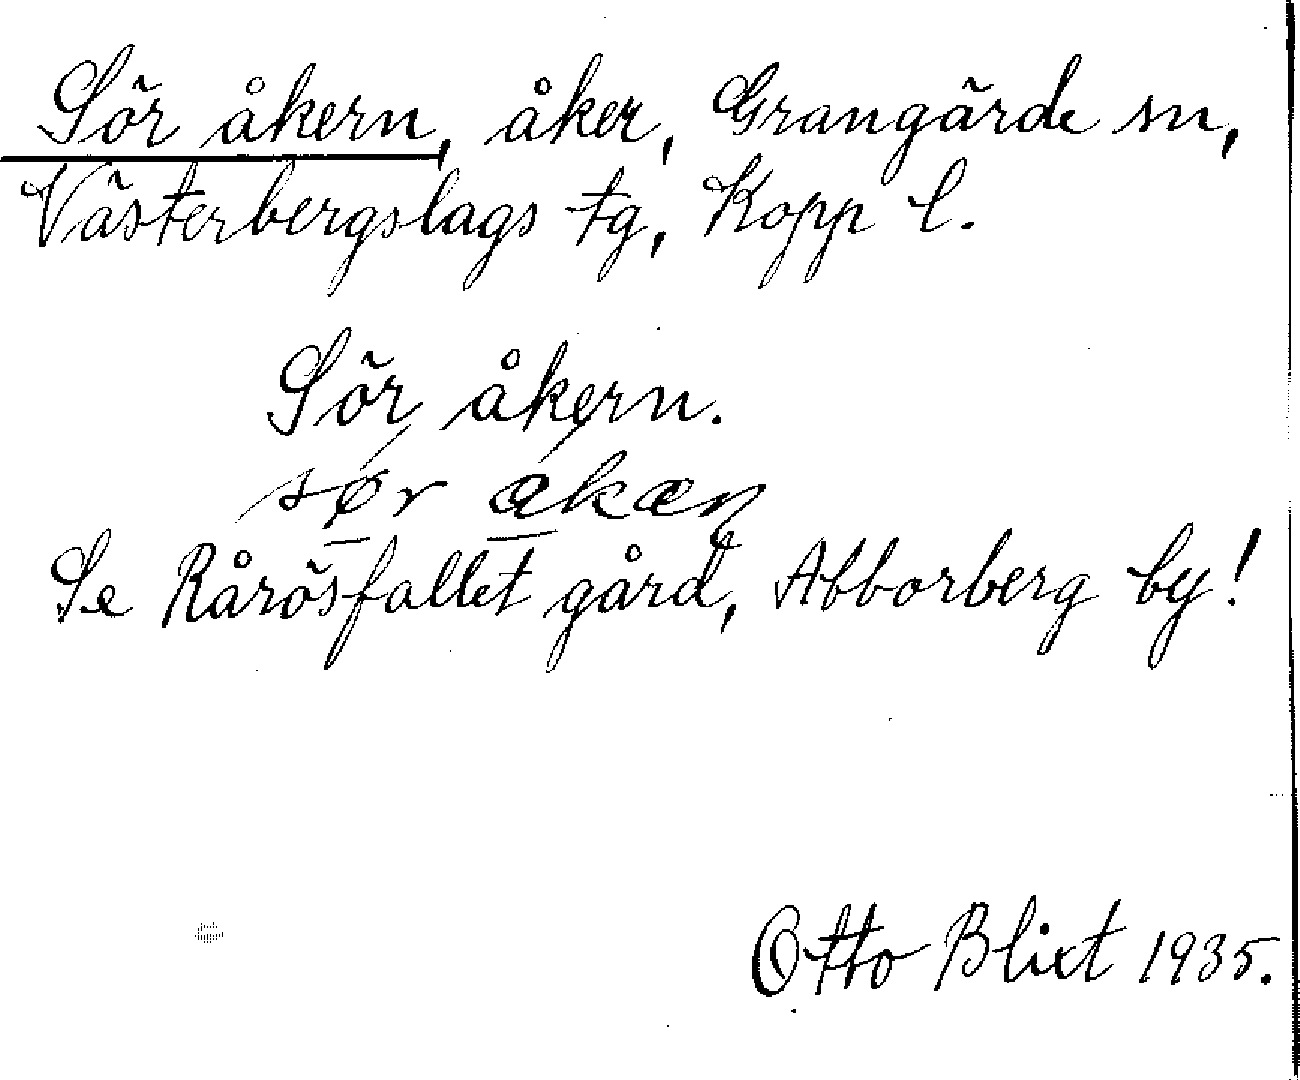 Sör åkern, åker, Grangärde sn,
Västerbergslags tg, Kopp l.
Sör åkern.
sør
Se Rårösfallet gård, Abborberg by!
Otto Blixt 1935.